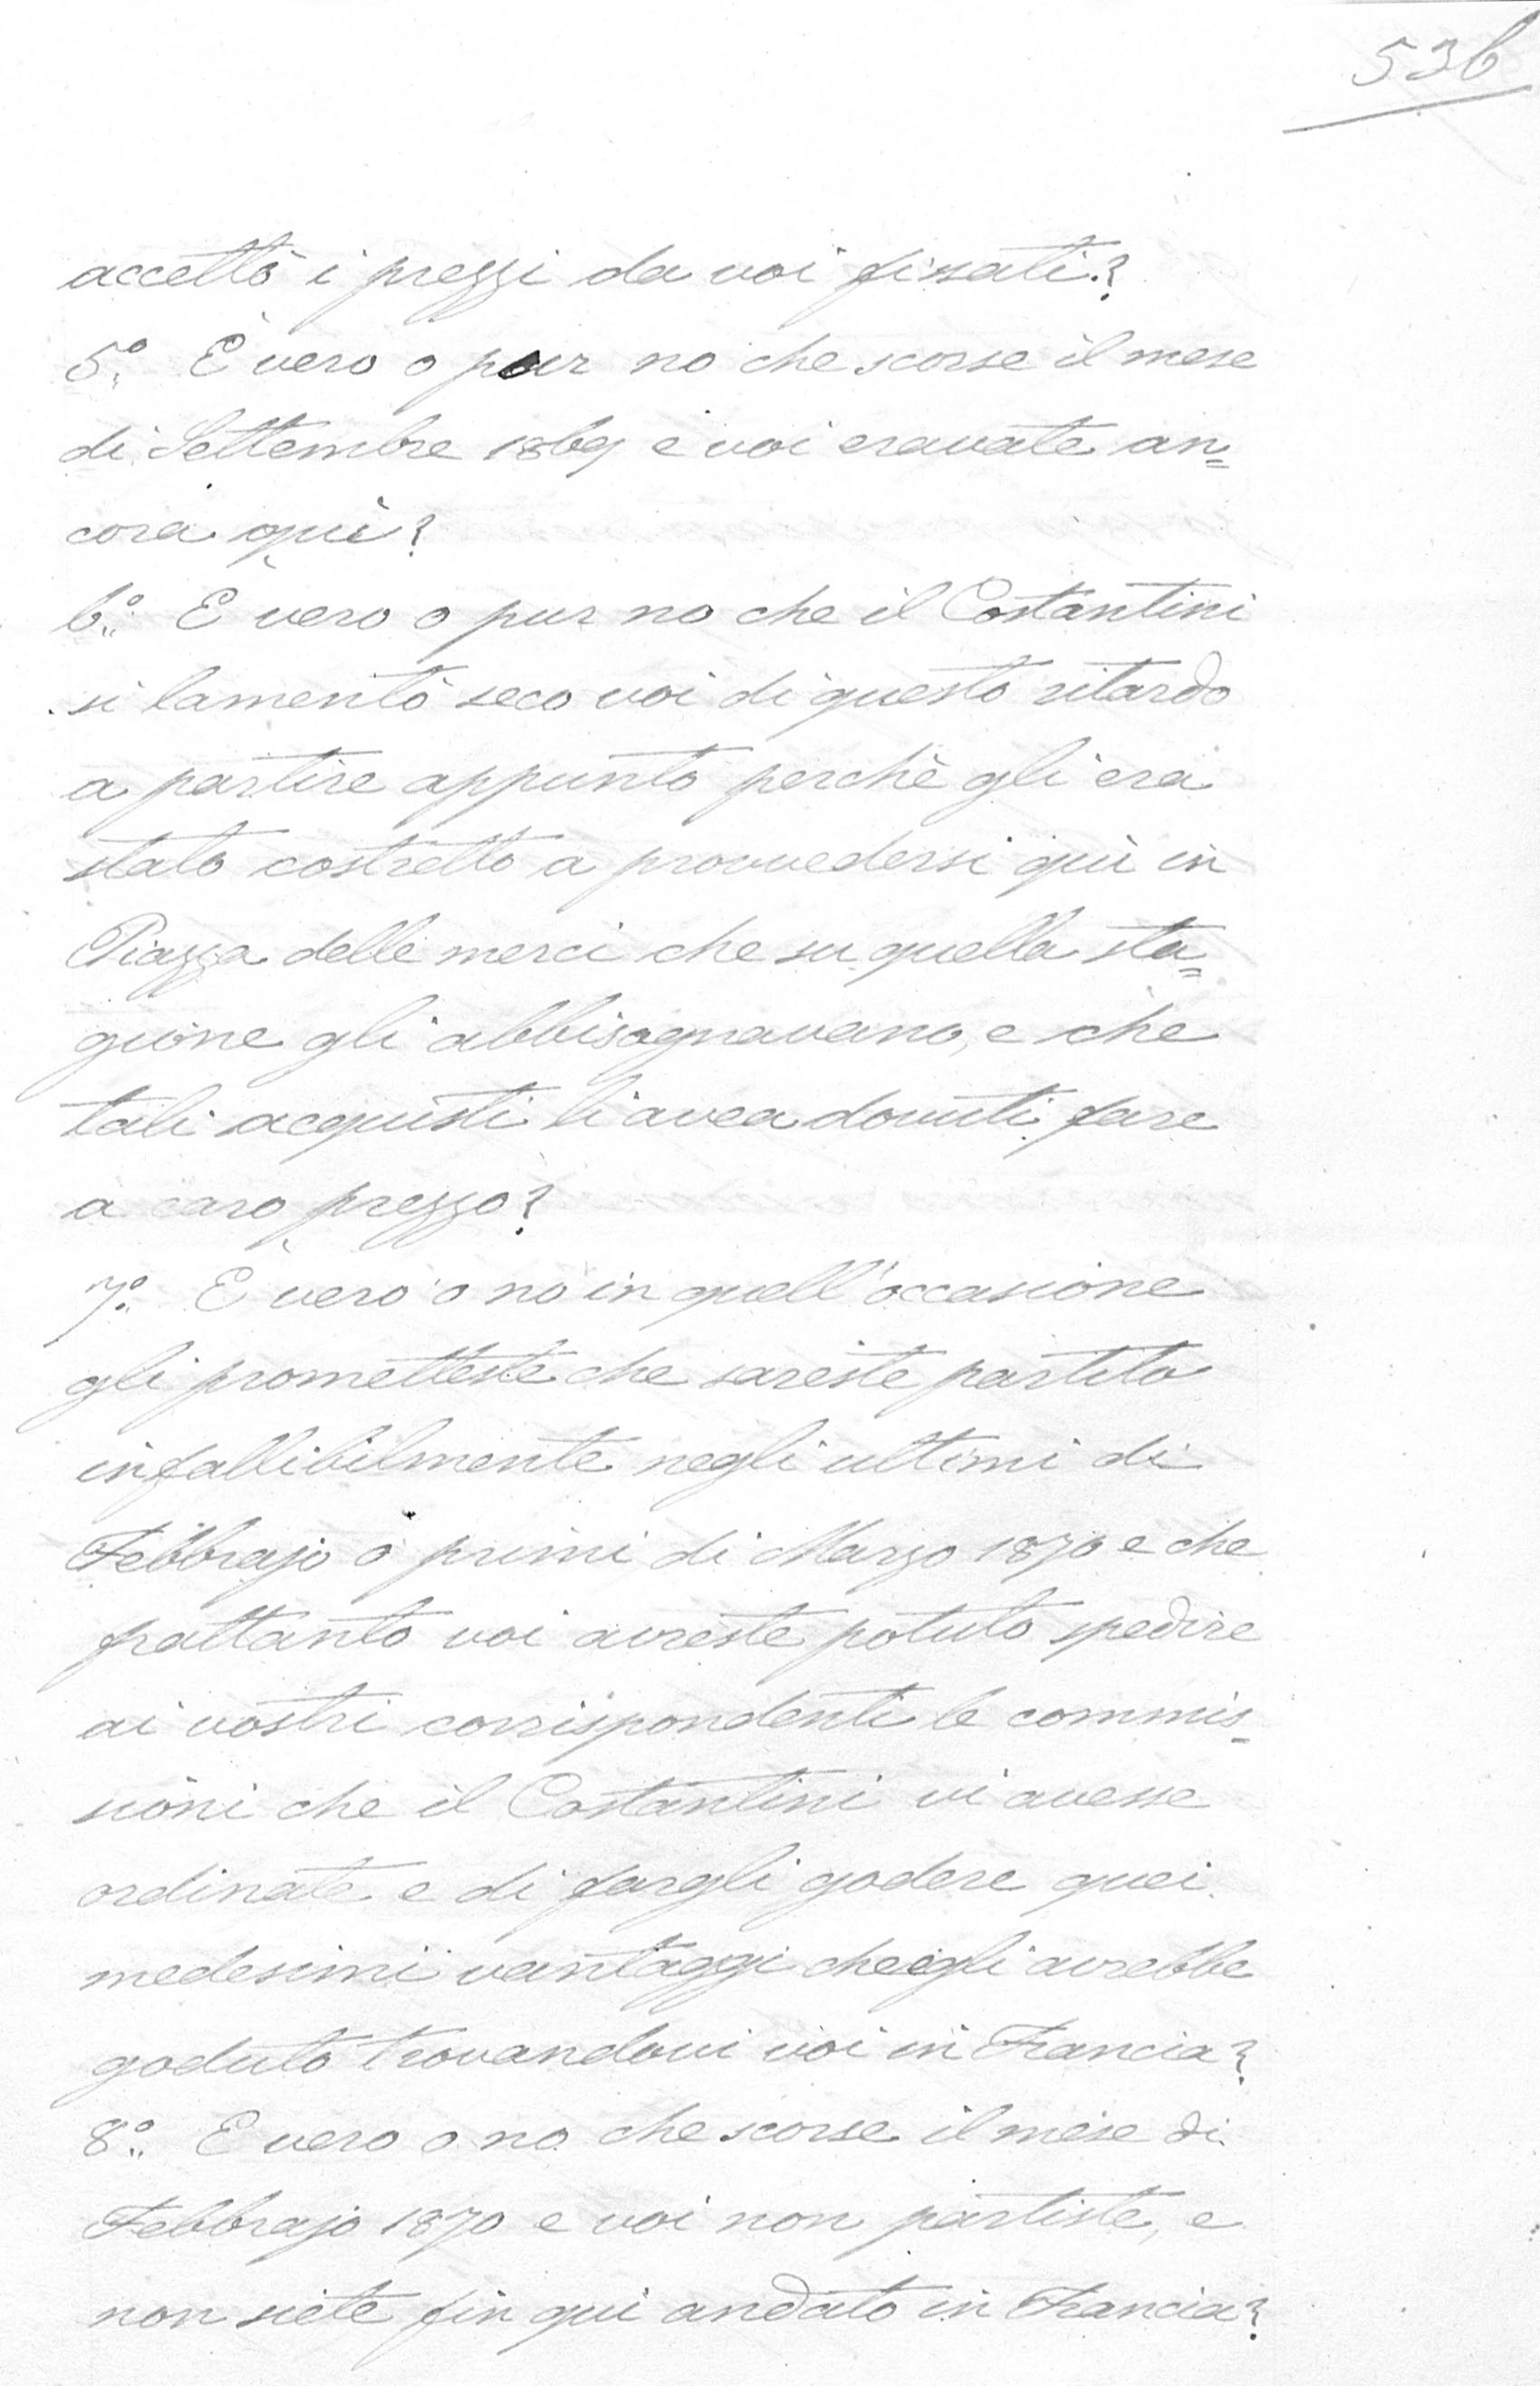 536
accettò i prezzi da voi fissati?
5º. È vero o pur no che scorse il mese
di Settembre 1869 e voi eravate an=
cora quì?
6º. È vero o pur no che il Costantini
si lamentò seco voi di questo ritardo
a partire appunto perchè gli era
stato costretto a provvedersi quì in
Piazza delle merci che su quella sta=
gione gli abbisognavano, e che
tali acquisti li avea dovuti fare
a caro prezzo?
7º. È vero o no in quell'occasione
gli prometteste che sareste partito
infallibilmente negli ultimi di
Febbrajo o primi di Marzo 1870 e che
frattanto voi avreste potuto spedire
ai vostri corrispondenti le commis=
sioni che il Costantini vi avesse
ordinate e di fargli godere quei
medesimi vantaggi che egli avrebbe
goduto trovandovi voi in Francia?
8º. E vero o no che scorse il mese di
Febbrajo 1870 e voi non partiste, e
non siete fin qui andato in Francia?